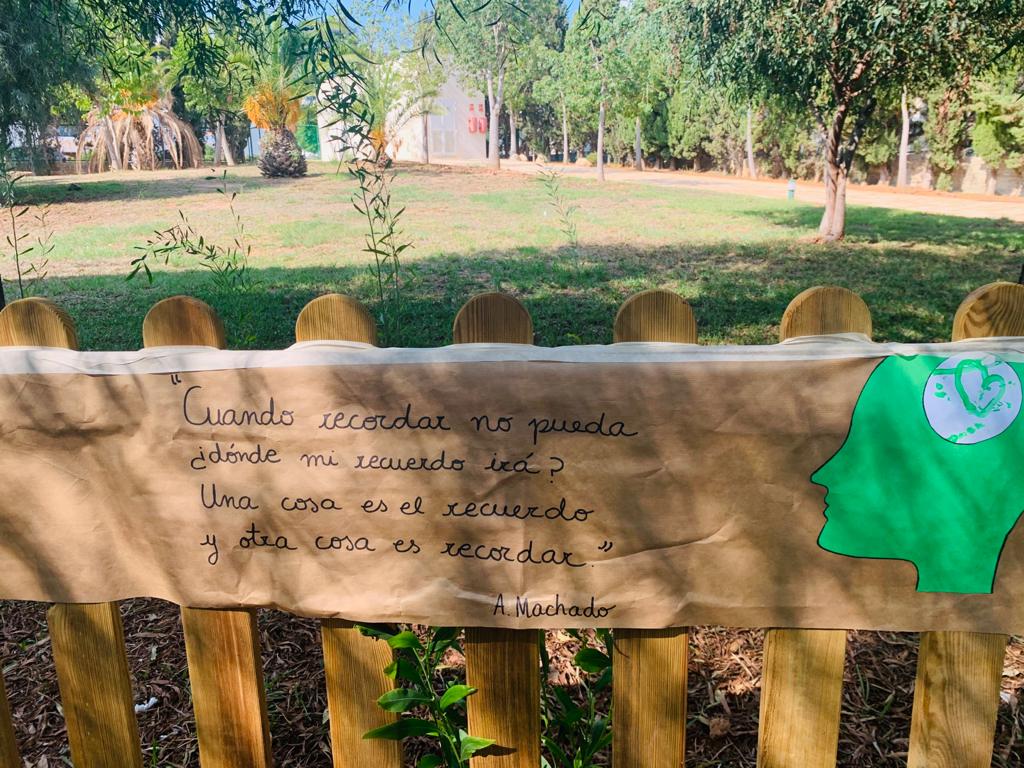 "Cuando recordar no pueda
¿dónde mi recuerdo irá?
Una cosa es el recuerdo
y otra cosa es recordar."
A. Machado